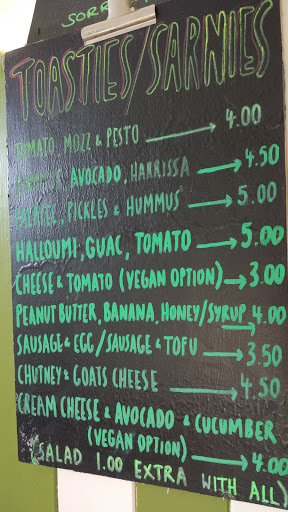 SORR
TOASTIES/SARNIES
TOMATO, MOZZ & PESTO → 4.00
AVOCADO, HARRISSA → 4.50
FALAFEL, PICKLES & HUMMUS → 5.00
HALLOUMI, GUAC, TOMATO → 5.00
CHEESE & TOMATO (VEGAN OPTION) → 3.00
PEANUT BUTTER, BANANA, HONEY/SYRUP → 4.00
SAUSAGE & EGG/SAUSAGE & TOFU → 3.50
CHUTNEY & GOATS CHEESE → 4.50
CREAM CHEESE & AVOCADO & CUCUMBER
(VEGAN OPTION) → 4.00
(SALAD 1.00 EXTRA WITH ALL)